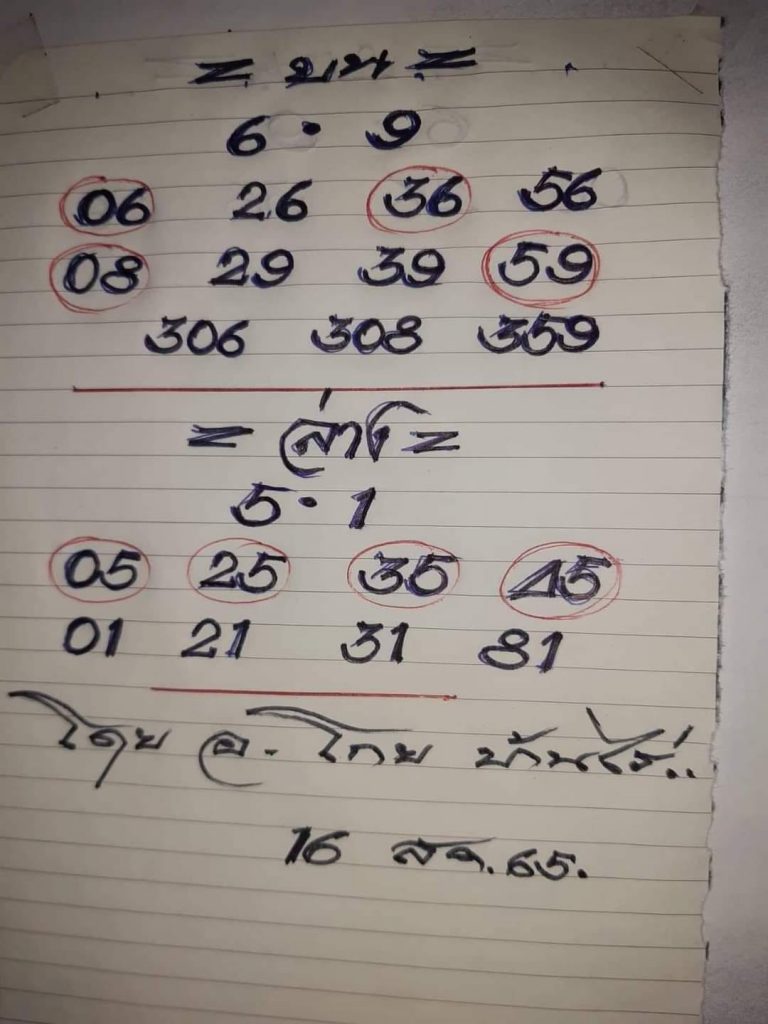 = บน =
6 · 9
06 26 36 56
08 29 39 59
306 308 359
= ล่าง =
5 · 1
05 25 35 45
01 21 31 81
โดย อ. ไทย บ้านไร่..
16 สค. 65.